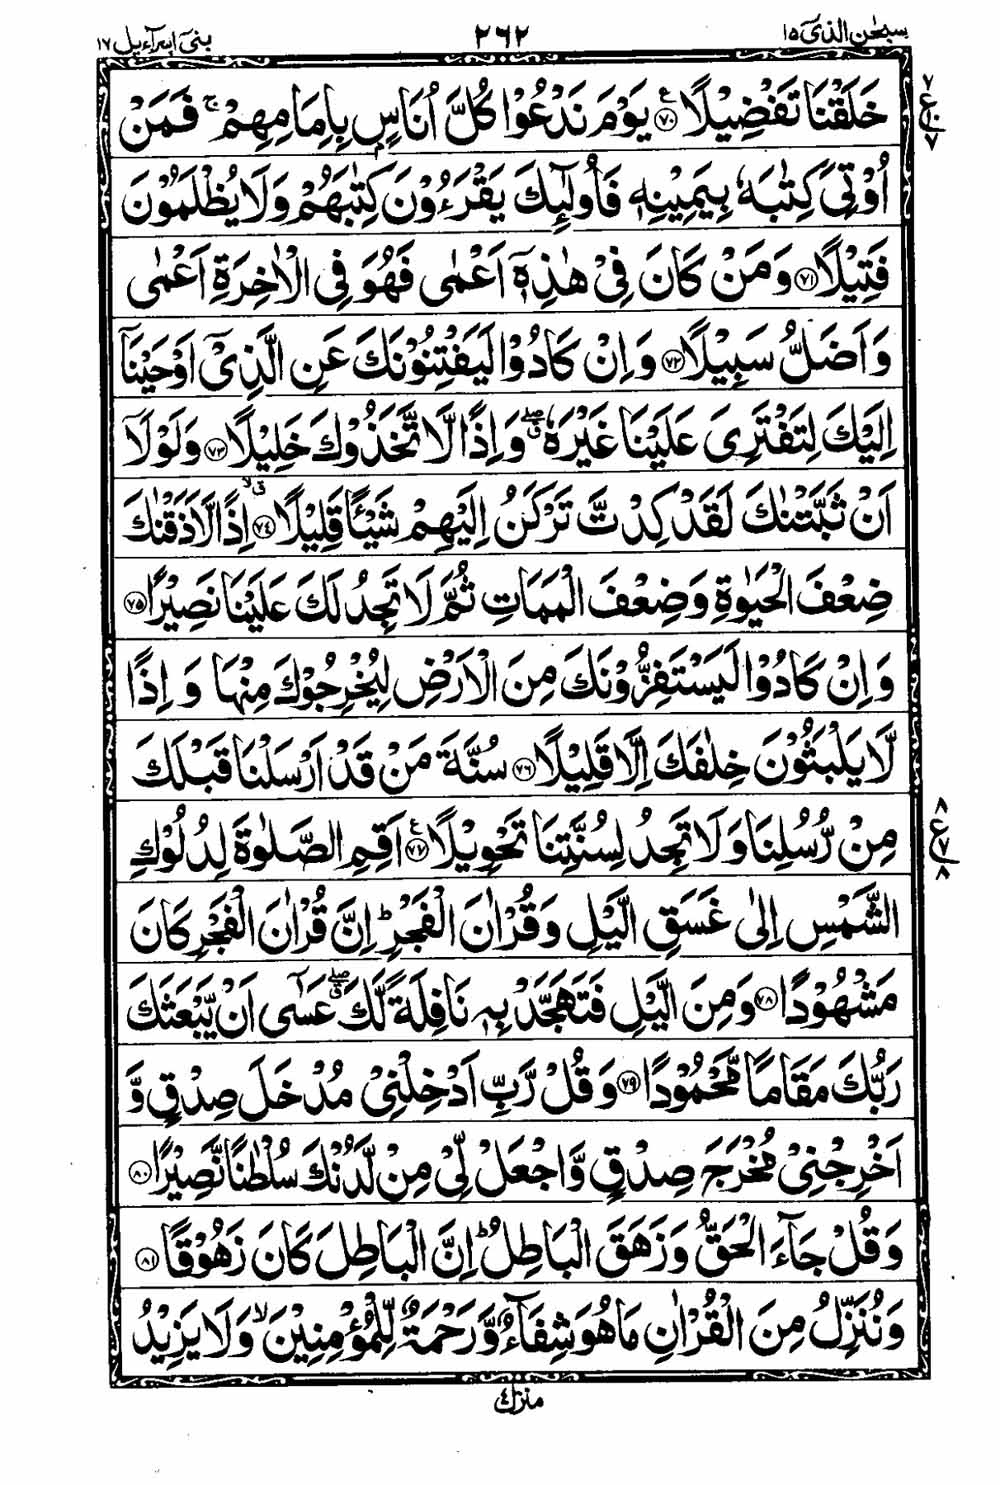 سبحن الذى ١٥ ٢٦٢ بنى اسرآءيل ١٧
خَلَقْنَا تَفْضِيْلًا ﴿٧٠﴾ ع يَوْمَ نَدْعُوْا كُلَّ اُنَاسٍۭ بِاِمَامِهِمْ ۚ فَمَنْ
اُوْتِىَ كِتٰبَهٗ بِيَمِيْنِهٖ فَاُولٰٓئِكَ يَقْرَءُوْنَ كِتٰبَهُمْ وَلَا يُظْلَمُوْنَ
فَتِيْلًا ﴿٧١﴾ وَمَنْ كَانَ فِىْ هٰذِهٖٓ اَعْمٰى فَهُوَ فِى الْاٰخِرَةِ اَعْمٰى
وَاَضَلُّ سَبِيْلًا ﴿٧٢﴾ وَاِنْ كَادُوْا لَيَفْتِنُوْنَكَ عَنِ الَّذِىْٓ اَوْحَيْنَآ
اِلَيْكَ لِتَفْتَرِىَ عَلَيْنَا غَيْرَهٗ ۖ وَاِذًا لَّاتَّخَذُوْكَ خَلِيْلًا ﴿٧٣﴾ وَلَوْلَآ
اَنْ ثَبَّتْنٰكَ لَقَدْ كِدْتَّ تَرْكَنُ اِلَيْهِمْ شَيْـًٔا قَلِيْلًا ﴿٧٤﴾ اِذًا لَّاَذَقْنٰكَ
ضِعْفَ الْحَيٰوةِ وَضِعْفَ الْمَمَاتِ ثُمَّ لَا تَجِدُ لَكَ عَلَيْنَا نَصِيْرًا ﴿٧٥﴾
وَاِنْ كَادُوْا لَيَسْتَفِزُّوْنَكَ مِنَ الْاَرْضِ لِيُخْرِجُوْكَ مِنْهَا وَاِذًا
لَّا يَلْبَثُوْنَ خِلٰفَكَ اِلَّا قَلِيْلًا ﴿٧٦﴾ سُنَّةَ مَنْ قَدْ اَرْسَلْنَا قَبْلَكَ
مِنْ رُّسُلِنَا وَلَا تَجِدُ لِسُنَّتِنَا تَحْوِيْلًا ﴿٧٧﴾ ع اَقِمِ الصَّلٰوةَ لِدُلُوْكِ
الشَّمْسِ اِلٰى غَسَقِ الَّيْلِ وَقُرْاٰنَ الْفَجْرِ ؕ اِنَّ قُرْاٰنَ الْفَجْرِ كَانَ
مَشْهُوْدًا ﴿٧٨﴾ وَمِنَ الَّيْلِ فَتَهَجَّدْ بِهٖ نَافِلَةً لَّكَ ۖ عَسٰٓى اَنْ يَّبْعَثَكَ
رَبُّكَ مَقَامًا مَّحْمُوْدًا ﴿٧٩﴾ وَقُلْ رَّبِّ اَدْخِلْنِىْ مُدْخَلَ صِدْقٍ وَّ
اَخْرِجْنِىْ مُخْرَجَ صِدْقٍ وَّاجْعَلْ لِّىْ مِنْ لَّدُنْكَ سُلْطٰنًا نَّصِيْرًا ﴿٨٠﴾
وَقُلْ جَآءَ الْحَقُّ وَزَهَقَ الْبَاطِلُ ؕ اِنَّ الْبَاطِلَ كَانَ زَهُوْقًا ﴿٨١﴾
وَنُنَزِّلُ مِنَ الْقُرْاٰنِ مَا هُوَ شِفَآءٌ وَّرَحْمَةٌ لِّلْمُؤْمِنِيْنَ ۙ وَلَا يَزِيْدُ
منزل ٤
٧ ع ٧
٨ ع ٧ ٨